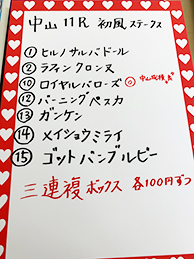 中山11R 初風ステークス
① ヒルノサルバドール
② ラフィンクロンヌ
⑩ ロイヤルバローズ ◎ 中山
⑫ バーニングペスカ
⑬ ガンケン
⑭ メイショウミライ
⑮ ゴットバンブルビー
三連複ボックス 各100円ずつ